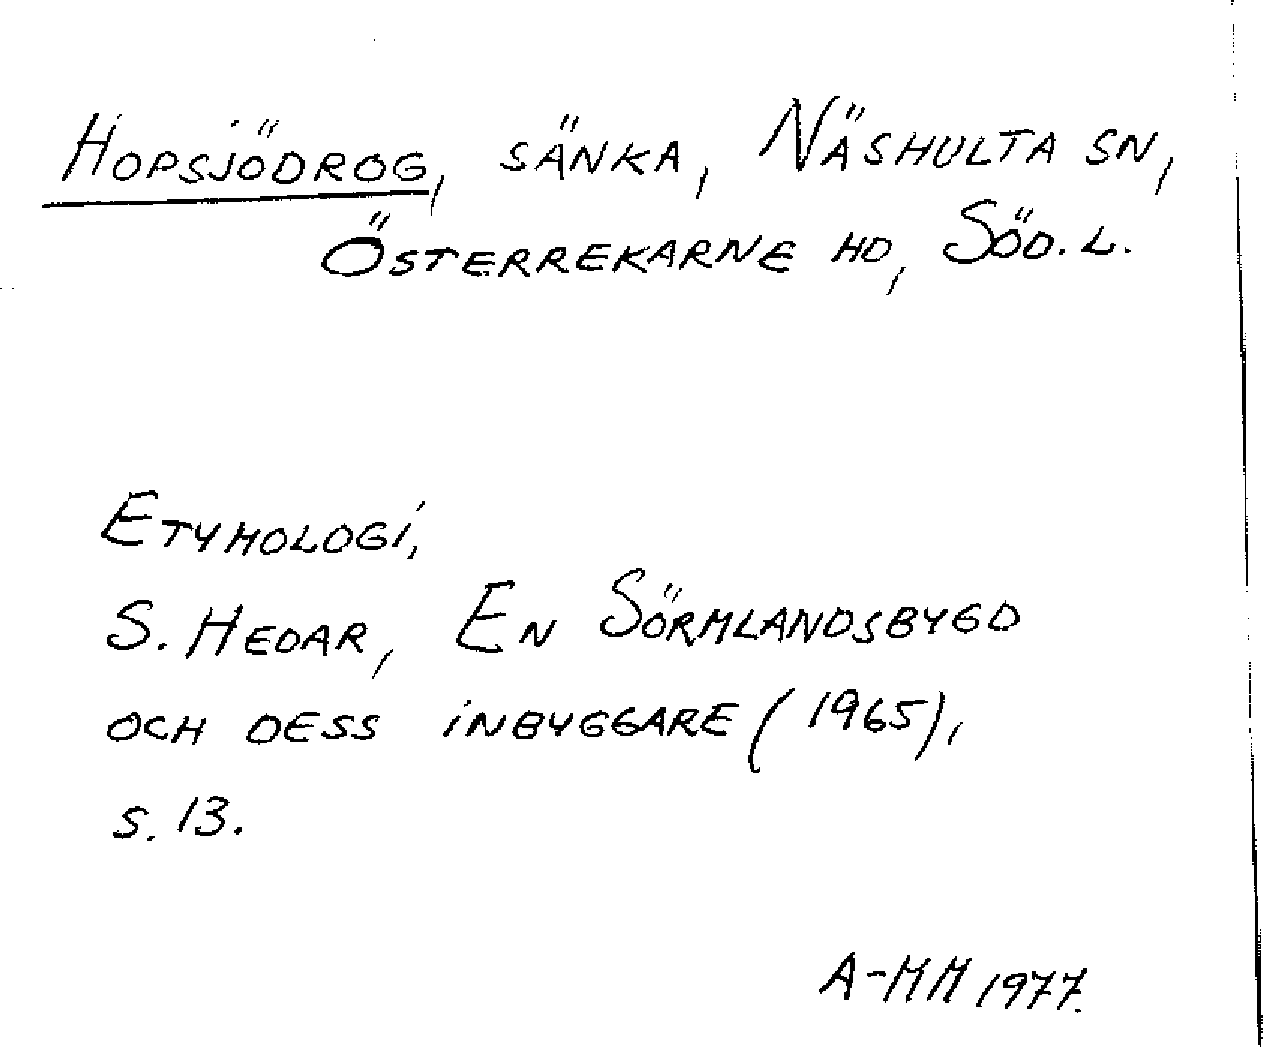 Hopsjödrog, sänka, Näshulta sn,
Österrekarne hd, Söd. l.
Etymologi,
S. Hedar, En Sörmlandsbygd
och dess inbyggare (1965),
s. 13.
A-MM 1977.